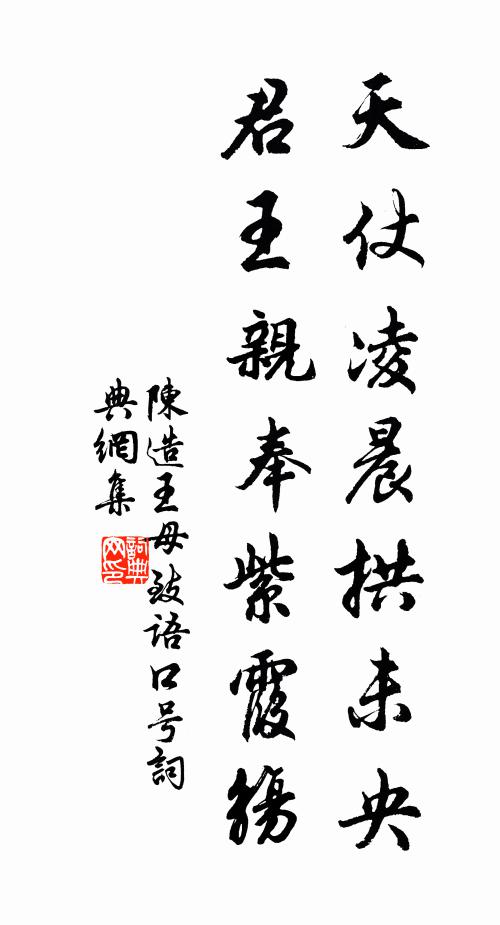 天仗凌晨拱未央
君王親奉紫霞觴
陳造王母致語口号詞
典網集
詞典网印